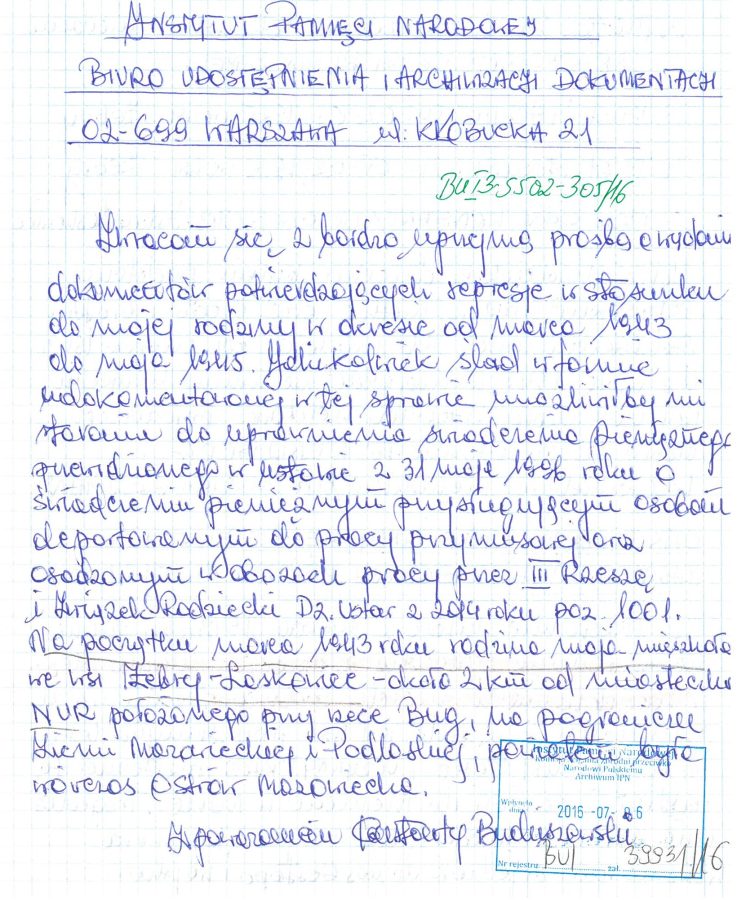 INSTYTUT PAMIĘCI NARODOWEJ
BIURO UDOSTĘPNIENIA I ARCHIWIZACJI DOKUMENTACJI
02-699 WARSZAWA ul. KŁOBUCKA 21
BUI3-5502-305/16
Zwracam się z bardzo uprzejmą prośbą o wydanie
dokumentów potwierdzających represje w stosunku
do mojej rodziny w okresie od marca 1943
do maja 1945. Jakikolwiek ślad w formie
udokumentowanej w tej sprawie umożliwiłby mi
starania do uprawnienia świadczenia pieniężnego
przewidzianego w ustawie z 31 maja 1996 roku o
świadczeniu pieniężnym przysługującym osobom
deportowanym do pracy przymusowej oraz
osadzonym w obozach pracy przez III Rzeszę
i Związek Radziecki Dz. Ustaw z 2014 roku poz. 1001.
Na początku marca 1943 roku rodzina moja mieszkała
we wsi Żebry-Laskowiec - około 2 km od miasteczka
NUR położonego przy rzece Bug, na pograniczu
Ziemi Mazowieckiej i Podlaskiej, powiatem była
wówczas Ostrów Mazowiecka.
Z poważaniem Konstanty Buduszewski
Instytut Pamięci Narodowej
Komisja Ścigania Zbrodni przeciwko
Narodowi Polskiemu
Archiwum IPN
Wpłynęło
dnia 2016 -07- 06
Nr rejestru BUI zał. 39931/16